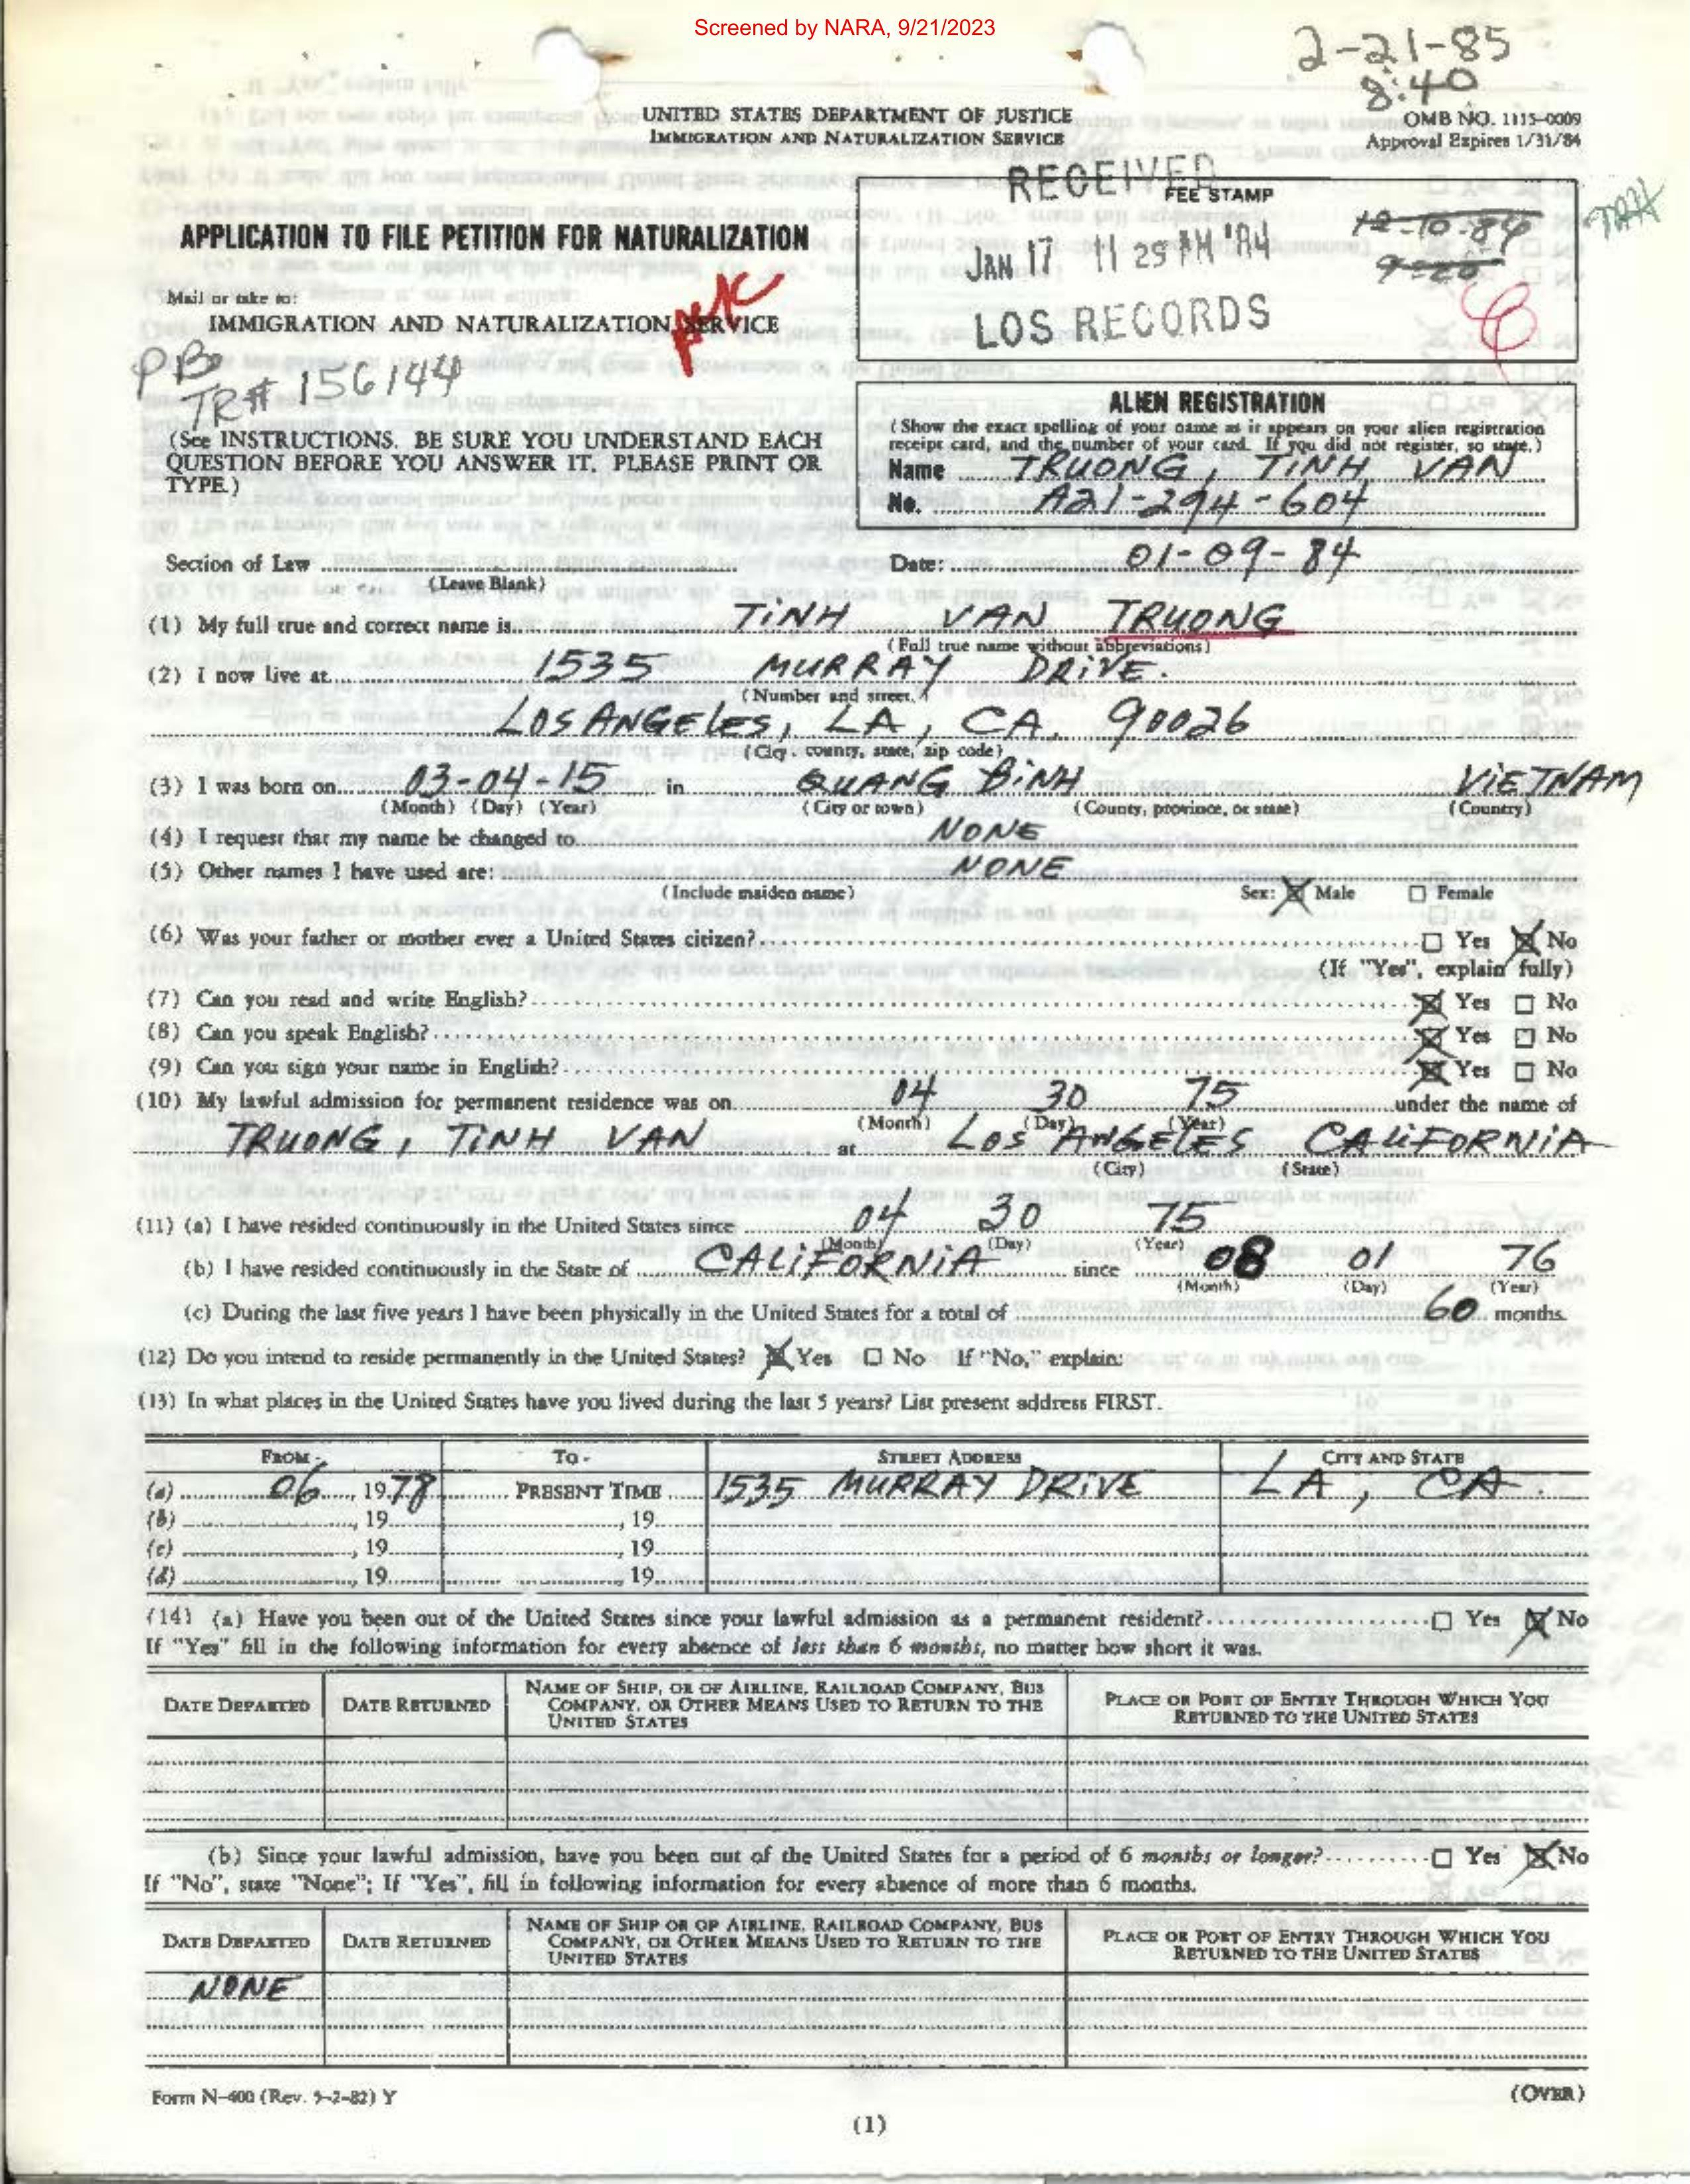 Screened by NARA, 9/21/2023
2-21-85
8:40
UNITED STATES DEPARTMENT OF JUSTICE
IMMIGRATION AND NATURALIZATION SERVICE
OMB NO. 1115-0009
Approval Expires 1/31/84
RECEIVED
FEE STAMP
12-10-84
JAN 17 11 25 AM '84
LOS RECORDS
APPLICATION TO FILE PETITION FOR NATURALIZATION
Mail or take to:
IMMIGRATION AND NATURALIZATION SERVICE
PB
TR# 156144
(See INSTRUCTIONS. BE SURE YOU UNDERSTAND EACH
QUESTION BEFORE YOU ANSWER IT. PLEASE PRINT OR
TYPE.)
ALIEN REGISTRATION
(Show the exact spelling of your name as it appears on your alien registration
receipt card, and the number of your card. If you did not register, so state.)
Name TRUONG, TINH VAN
No. A21-294-604
Section of Law
(Leave Blank)
Date: 01-09-84
(1) My full true and correct name is TINH VAN TRUONG
(Full true name without abbreviations)
(2) I now live at 1535 MURRAY DRIVE.
(Number and street,)
LOS ANGELES, LA, CA. 90026
(City, county, state, zip code)
(3) I was born on 03-04-15 in QUANG BINH VIETNAM
(Month) (Day) (Year) (City or town) (County, province, or state) (Country)
(4) I request that my name be changed to NONE
(5) Other names I have used are: NONE
(Include maiden name) Sex: ☒ Male ☐ Female
(6) Was your father or mother ever a United States citizen? ☐ Yes ☒ No
(If "Yes", explain fully)
(7) Can you read and write English? ☒ Yes ☐ No
(8) Can you speak English? ☒ Yes ☐ No
(9) Can you sign your name in English? ☒ Yes ☐ No
(10) My lawful admission for permanent residence was on 04 30 75 under the name of
(Month) (Day) (Year)
TRUONG, TINH VAN at LOS ANGELES CALIFORNIA
(City) (State)
(11) (a) I have resided continuously in the United States since 04 30 75
(Month) (Day) (Year)
(b) I have resided continuously in the State of CALIFORNIA since 08 01 76
(Month) (Day) (Year)
(c) During the last five years I have been physically in the United States for a total of 60 months.
(12) Do you intend to reside permanently in the United States? ☒ Yes ☐ No If "No," explain:
(13) In what places in the United States have you lived during the last 5 years? List present address FIRST.
FROM - TO - STREET ADDRESS CITY AND STATE
(a) 06, 1978 PRESENT TIME 1535 MURRAY DRIVE LA, CA.
(b) , 19 , 19
(c) , 19 , 19
(d) , 19 , 19
(14) (a) Have you been out of the United States since your lawful admission as a permanent resident? ☐ Yes ☒ No
If "Yes" fill in the following information for every absence of less than 6 months, no matter how short it was.
DATE DEPARTED DATE RETURNED NAME OF SHIP, OR OF AIRLINE, RAILROAD COMPANY, BUS COMPANY, OR OTHER MEANS USED TO RETURN TO THE UNITED STATES PLACE OR PORT OF ENTRY THROUGH WHICH YOU RETURNED TO THE UNITED STATES
(b) Since your lawful admission, have you been out of the United States for a period of 6 months or longer? ☐ Yes ☒ No
If "No", state "None"; If "Yes", fill in following information for every absence of more than 6 months.
DATE DEPARTED DATE RETURNED NAME OF SHIP OR OF AIRLINE, RAILROAD COMPANY, BUS COMPANY, OR OTHER MEANS USED TO RETURN TO THE UNITED STATES PLACE OR PORT OF ENTRY THROUGH WHICH YOU RETURNED TO THE UNITED STATES
NONE
Form N-400 (Rev. 9-2-82) Y
(OVER)
(1)